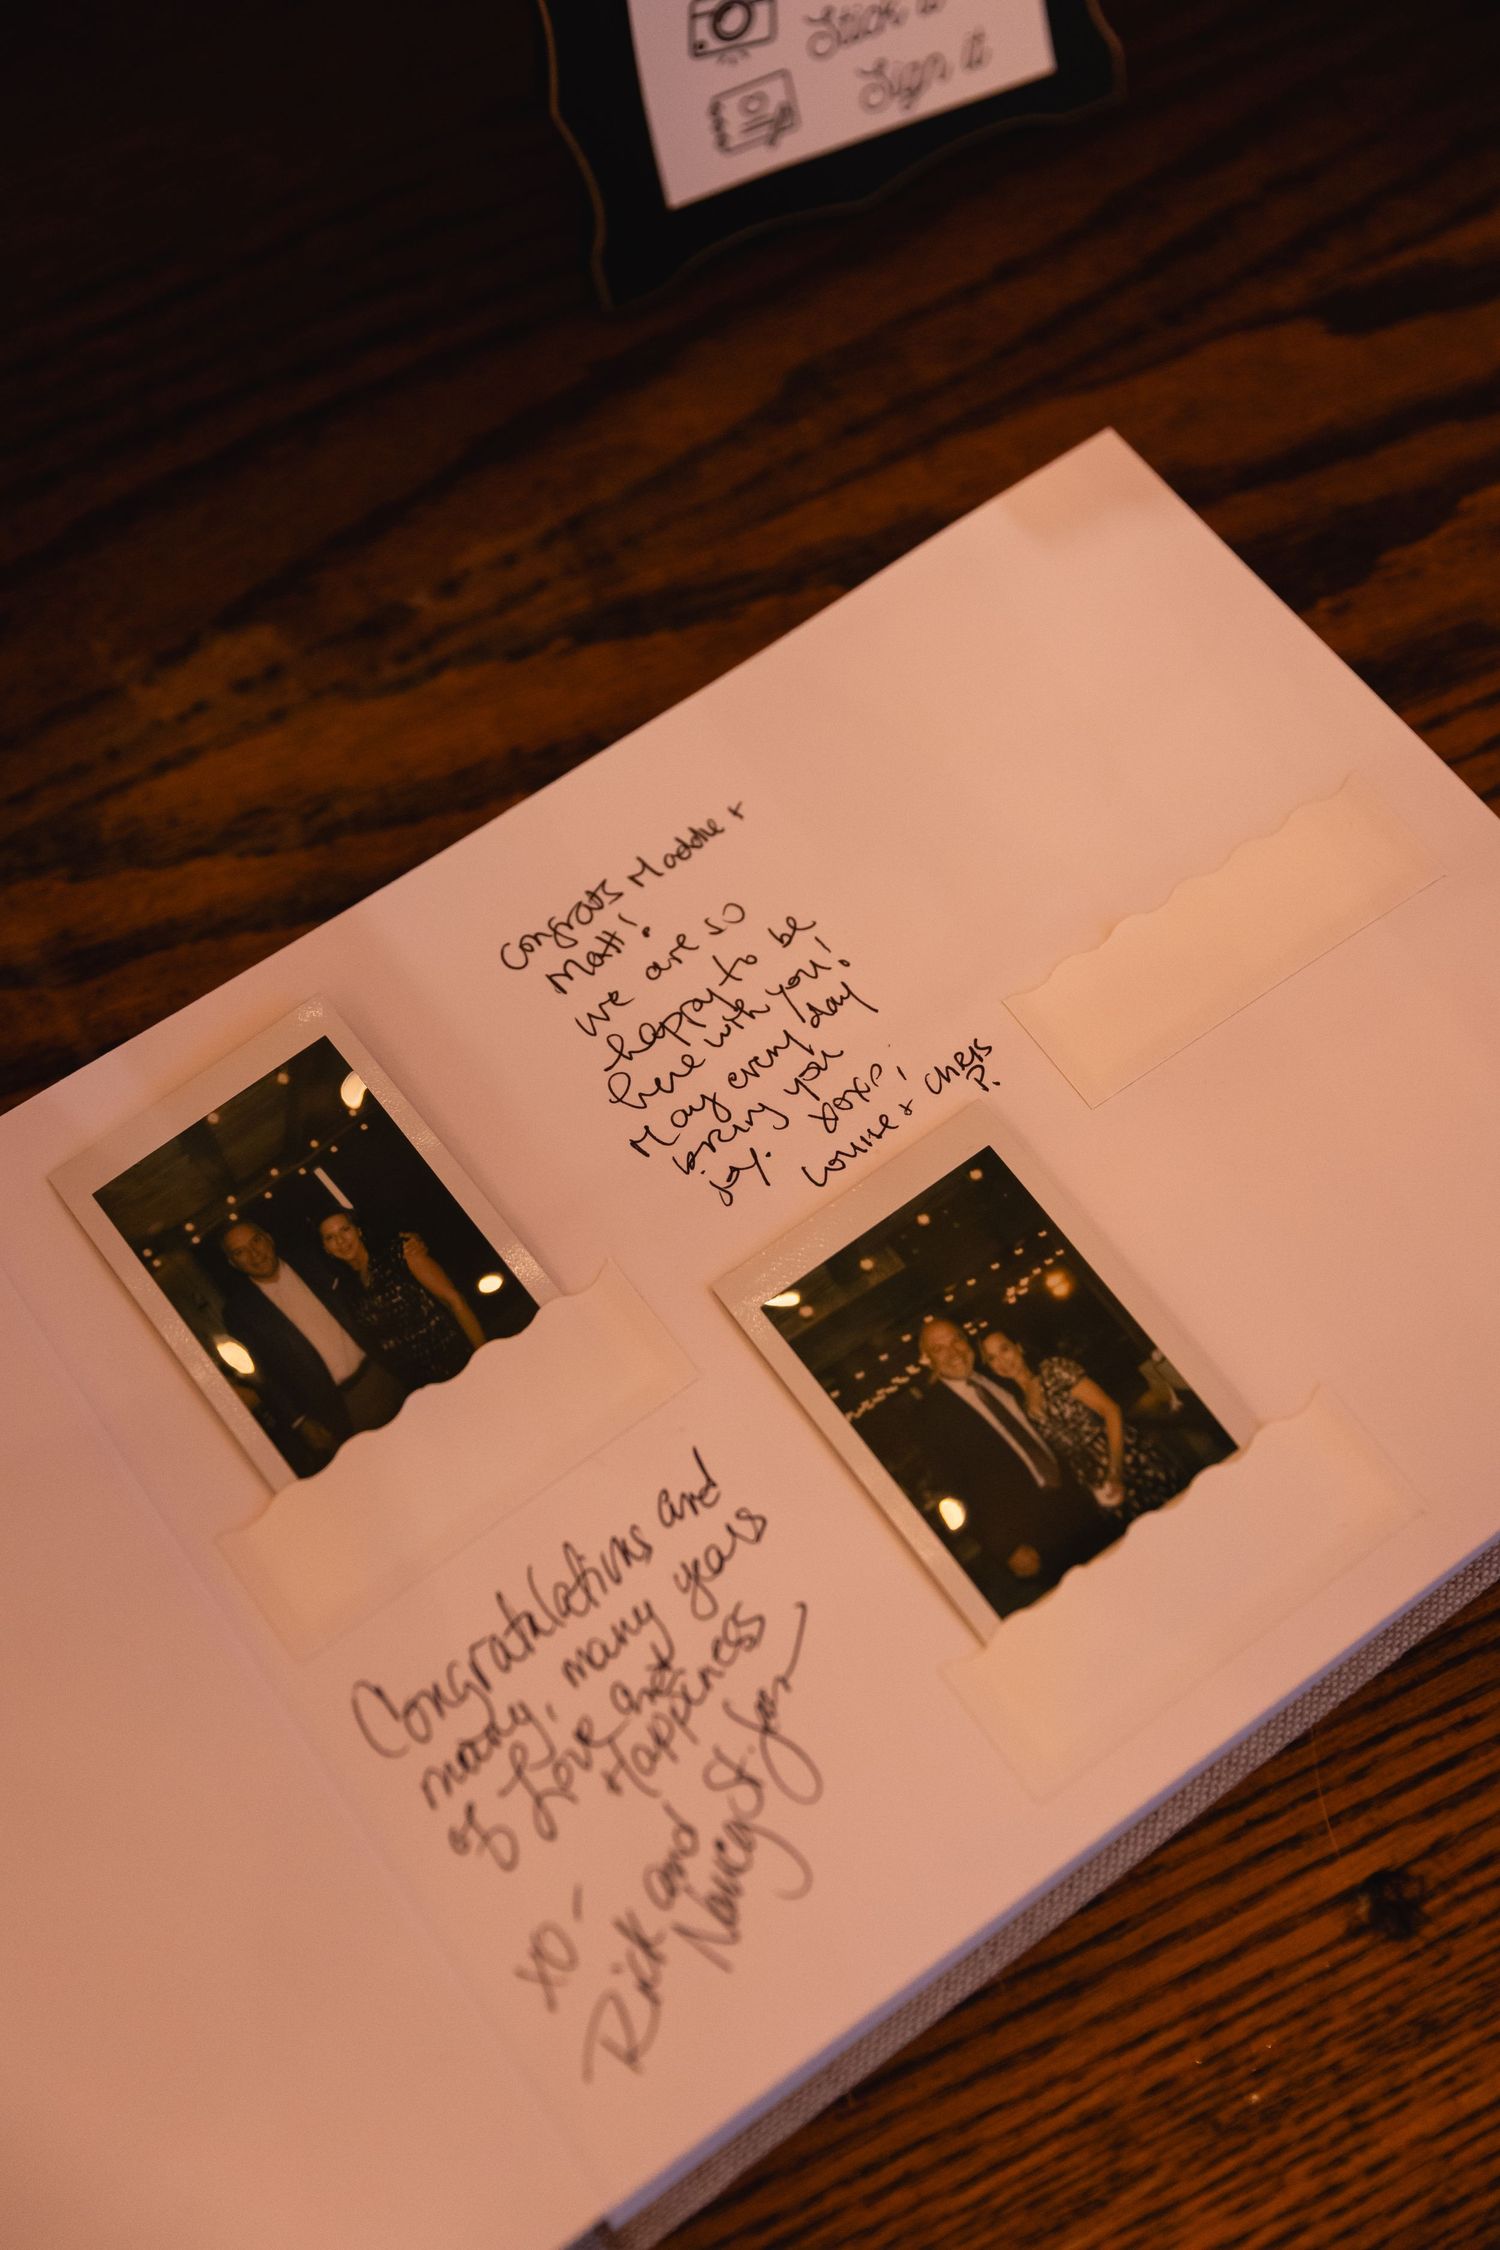 Stick it
Sign it
Congrats Maddie +
Matt!
we are so
happy to be
here with you!
May every day
bring you
joy. xoxo,
Louise + Chris
P.
Congratulations and
many, many years
of Love and
Happiness
XO-
Rick and
Nancy St. Jean